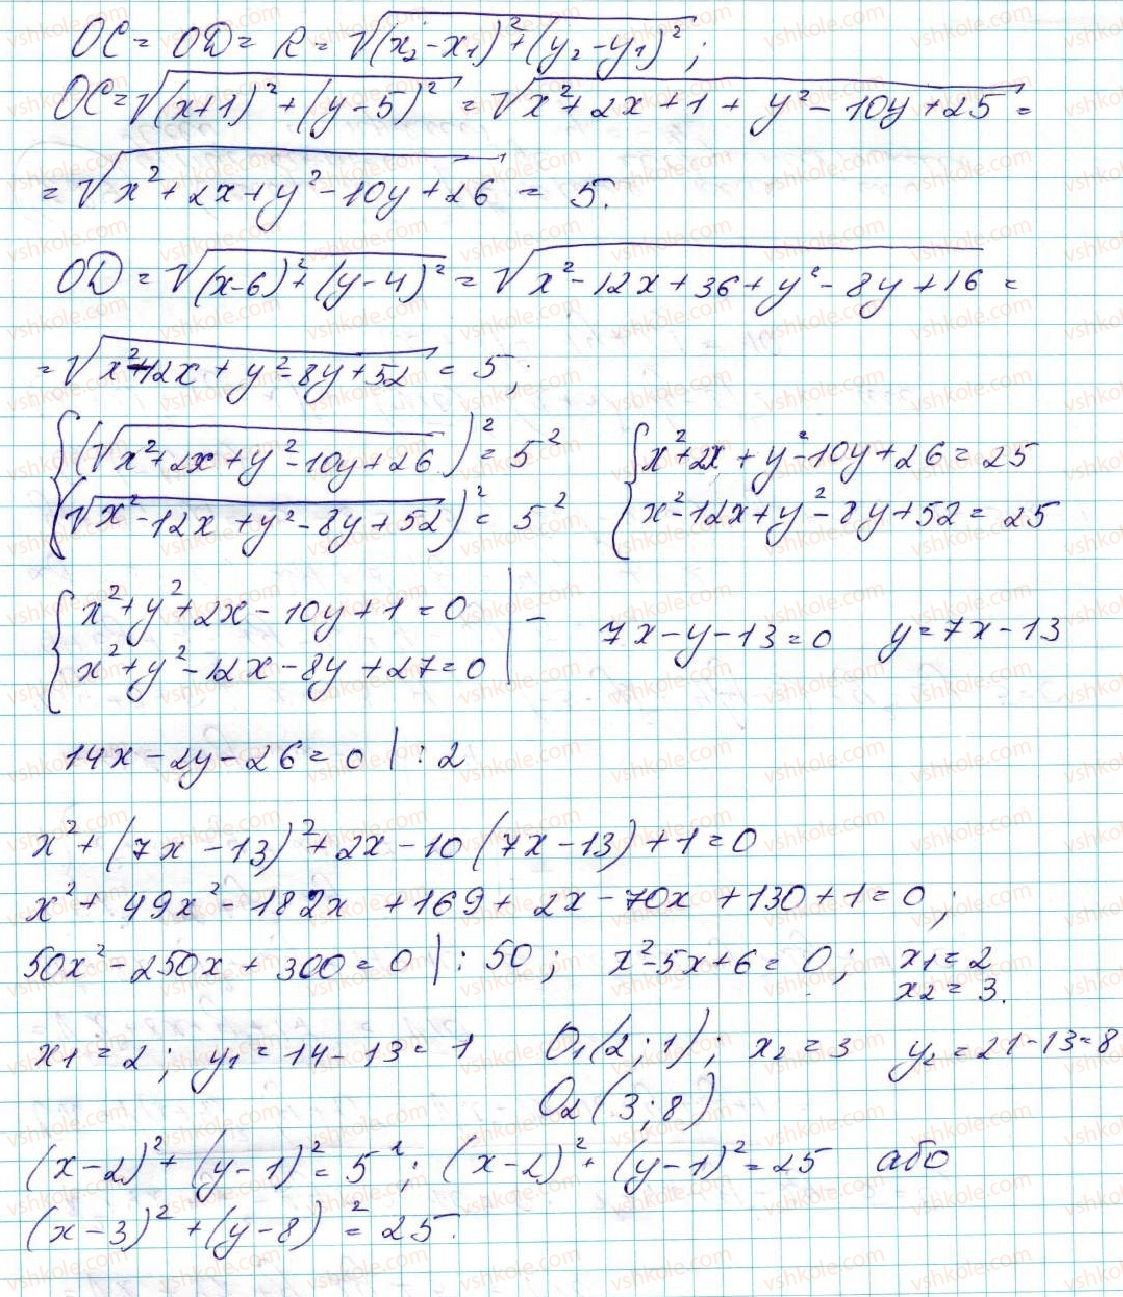 OC = OD = R = √((x₂-x₁)²+(y₂-y₁)²);
OC=√((x+1)²+(y-5)²) = √(x²+2x+1+y²-10y+25) =
= √(x²+2x+y²-10y+26) = 5.
OD = √((x-6)²+(y-4)²) = √(x²-12x+36+y²-8y+16) =
= √(x²-12x+y²-8y+52) = 5;
{(√(x²+2x+y²-10y+26))² = 5² {x²+2x+y²-10y+26=25
{(√(x²-12x+y²-8y+52))² = 5² {x²-12x+y²-8y+52=25
{x²+y²+2x-10y+1=0 | - 7x-y-13=0 y=7x-13
{x²+y²-12x-8y+27=0 |
14x-2y-26=0 | :2
x²+(7x-13)²+2x-10(7x-13)+1=0
x²+49x²-182x+169+2x-70x+130+1=0;
50x²-250x+300=0 | :50; x²-5x+6=0; x₁=2
x₂=3.
x₁=2; y₁=14-13=1 O₁(2;1); x₂=3 y₂=21-13=8
O₂(3;8)
(x-2)²+(y-1)²=5²; (x-2)²+(y-1)²=25 або
(x-3)²+(y-8)²=25.